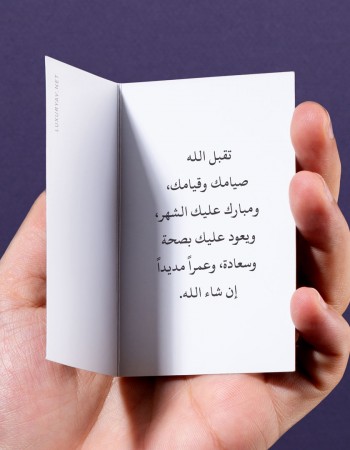 تقبل الله
صيامك وقيامك،
ومبارك عليك الشهر،
ويعود عليك بصحة
وسعادة، وعمراً مديداً
إن شاء الله.
LUXURYAY.NET